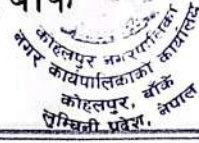 बाँके
कोहलपुर नगरपालिका
नगर कार्यपालिकाको कार्यालय
कोहलपुर, बाँके
लुम्बिनी प्रदेश, नेपाल